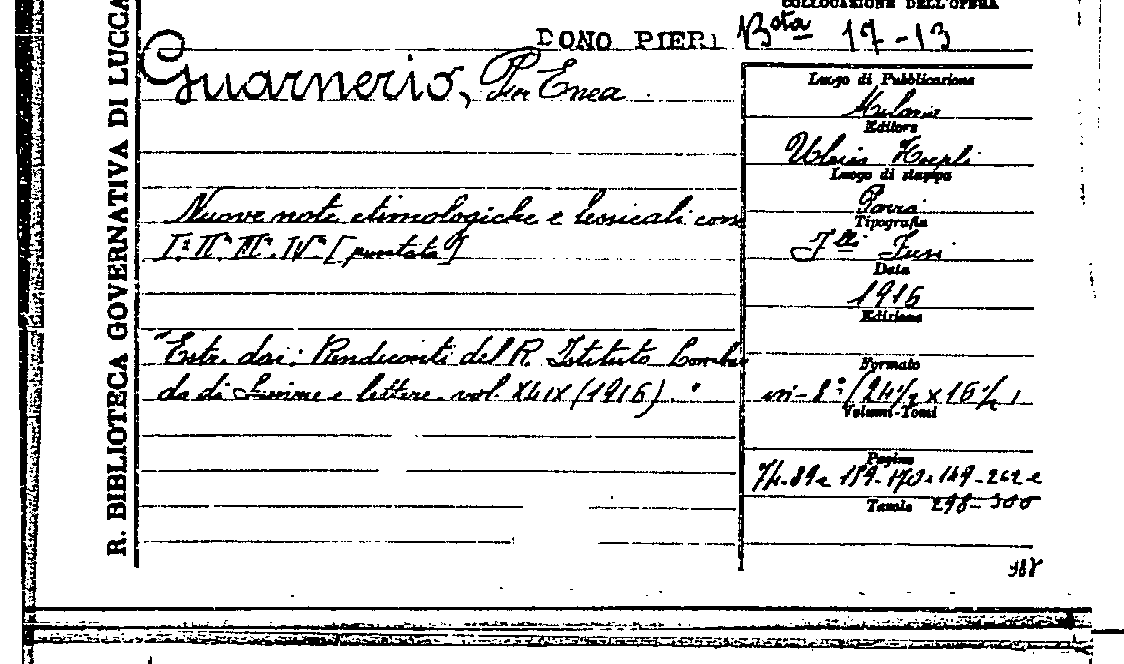 COLLOCAZIONE DELL'OPERA
DONO PIERI Bsta 17-13
R. BIBLIOTECA GOVERNATIVA DI LUCCA
Guarnerio, Pier Enea
Luogo di Pubblicazione
Milano
Editore
Ulrico Hoepli
Luogo di stampa
Pavia
Tipografia
Flli Fusi
Data
1916
Edizione
Nuove note etimologiche e lessicali corse
Iª. IIª. IIIª. IVª [puntata]
"Estr. dai: Rendiconti del R. Istituto Lombar
do di Scienze e lettere. vol. XLIX (1916). "
Formato
in-8° (24½ x 16½)
Volumi-Tomi
Pagine
74-89 e 159-170
262 e
Tavole 298-300